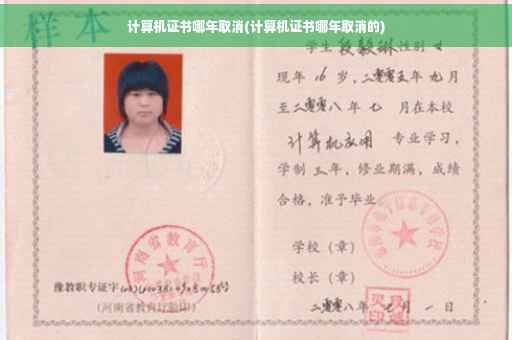 计算机证书哪年取消(计算机证书哪年取消的)
样本
学生段毅琳性别女
现年16岁,二零零五年九月
至二零零八年七 月在本校
计算机应用 专业学习,
学制三年,修业期满,成绩
合格,准予毕业
学校(章)
校长(章)
二零零八年 月一日
河南省教育厅
豫教职专证字
(河南省教育厅验印)